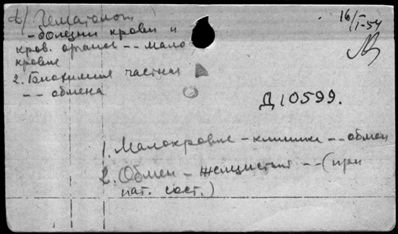 Гематология
- болезни крови и
кров. органов -- мало
кровие
2. Биохимия частная
-- обмена
16/I-54
Д10599.
1. Малокровие - клиника -- обмен
2. Обмен - -- (при
пат. сост.)